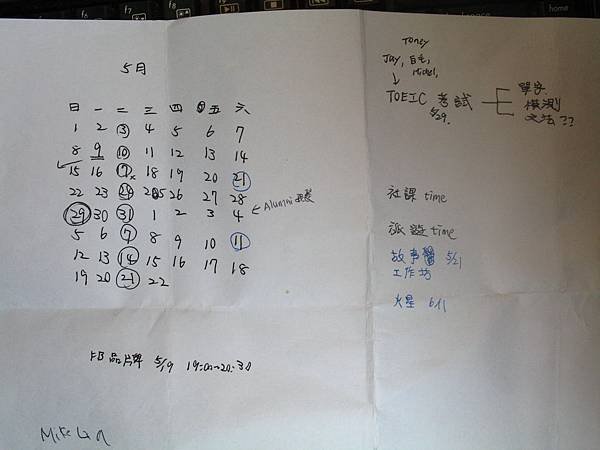 5月
日 一 二 三 四 五 六
1 2 3 4 5 6 7
8 9 10 11 12 13 14
15 16 17 18 19 20 21
22 23 24 25 26 27 28
29 30 31 1 2 3 4
Alumni
5 6 7 8 9 10 11
12 13 14 15 16 17 18
19 20 21 22
FB 品牌 5/9 19:00~20:30
Toney
Jay,
TOEIC 考試
5/29.
單字
模測
文法??
社課 time
派遊 time
故事 5/21
工作坊
火星 6/11
f6
f7
f8
home